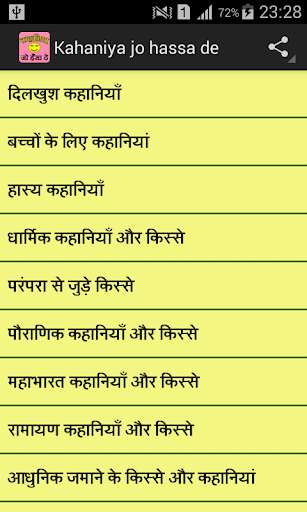 1 72% 23:28
Kahaniya jo hassa de
दिलखुश कहानियाँ
बच्चों के लिए कहानियां
हास्य कहानियाँ
धार्मिक कहानियाँ और किस्से
परंपरा से जुड़े किस्से
पौराणिक कहानियाँ और किस्से
महाभारत कहानियाँ और किस्से
रामायण कहानियाँ और किस्से
आधुनिक जमाने के किस्से और कहानियां